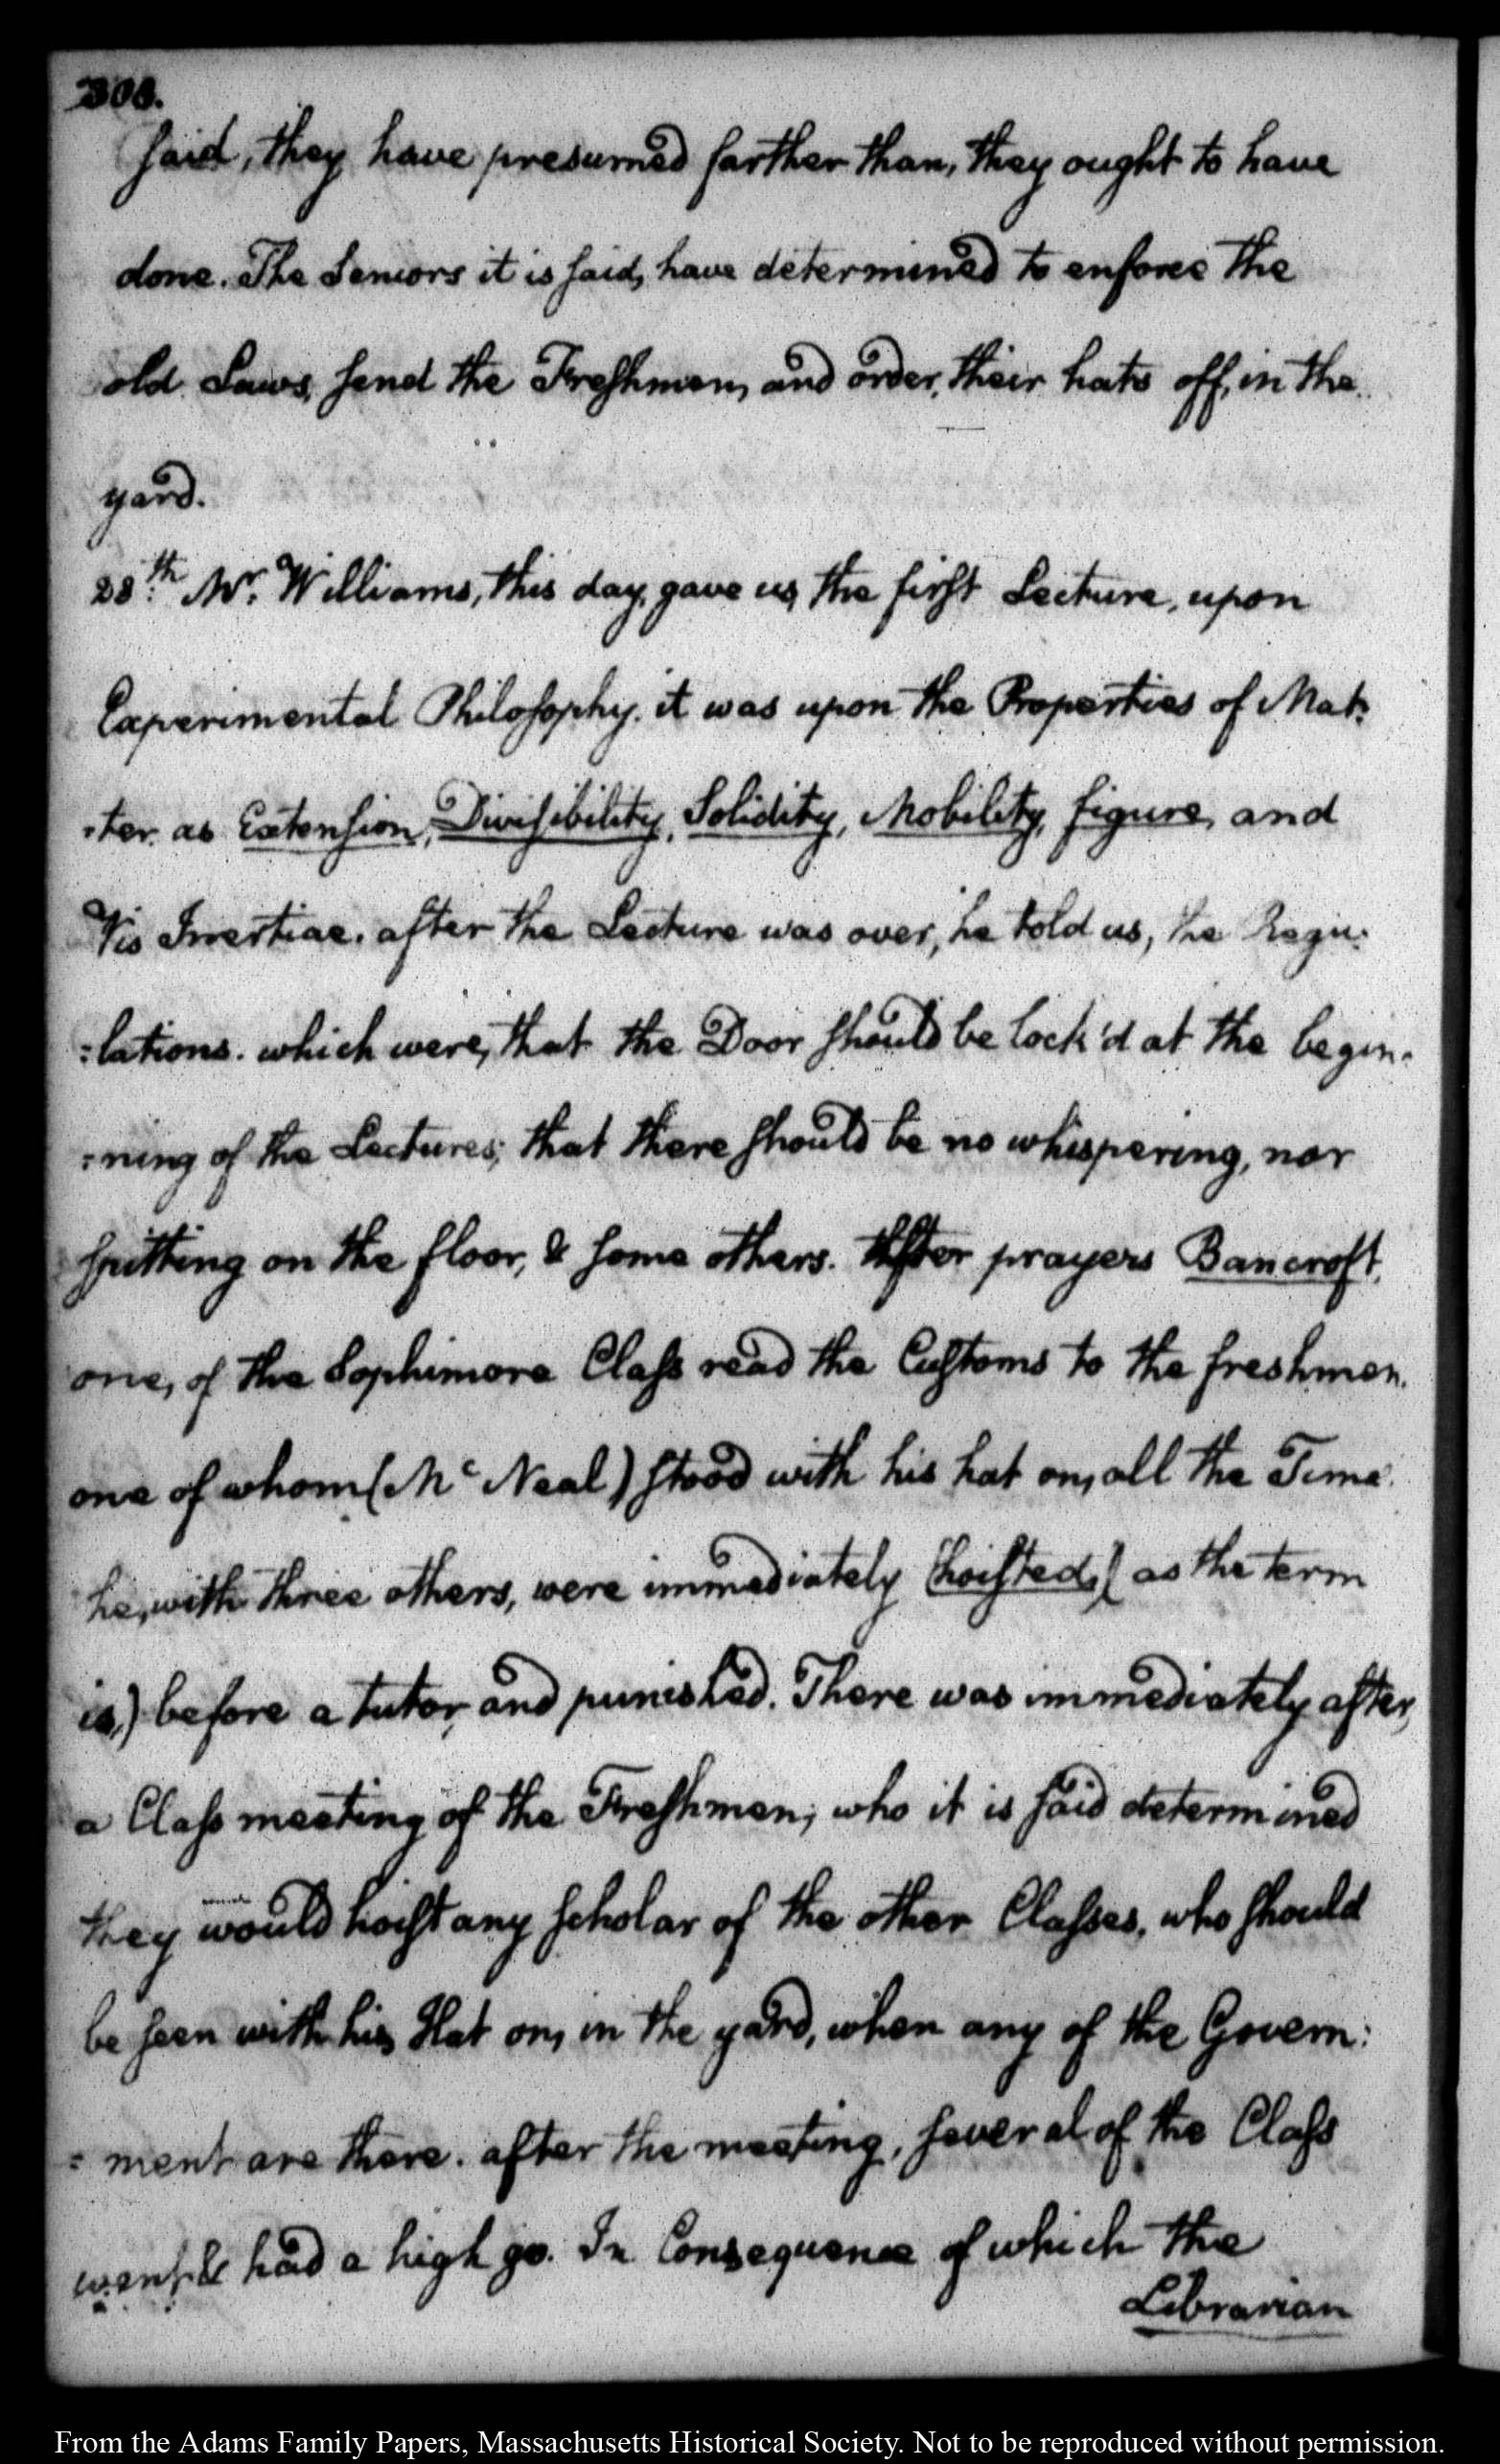 308.
said, they have presumed farther than, they ought to have
done. The Seniors it is said, have determined to enforce the
old Laws, send the Freshmen, and order, their hats off, in the
yard.
28th. Mr. Williams, this day, gave us, the first Lecture, upon
Experimental Philosophy. it was upon the Properties of Mat:
:ter. as Extension, Divisibility, Solidity, Mobility, figure, and
Vis Inertiae. after the Lecture was over, he told us, the Regu:
:lations. which were, that the Door should be lock'd at the begin:
:ning of the Lectures; that there should be no whispering, nor
spitting on the floor, & some others. After prayers Bancroft,
one, of the Sophimore Class read the Customs to the freshmen.
one of whom (Mc Neal) stood with his hat on, all the Time.
he, with three others, were immediately (hoisted,) as the term
is,) before a tutor, and punished. There was immediately after,
a Class meeting of the Freshmen; who it is said determined
they would hoist any scholar of the other Classes, who should
be seen with his Hat on, in the yard, when any of the Govern:
:ment are there. after the meeting, several of the Class
went, & had a high go. In Consequence of which the
Librarian
From the Adams Family Papers, Massachusetts Historical Society. Not to be reproduced without permission.